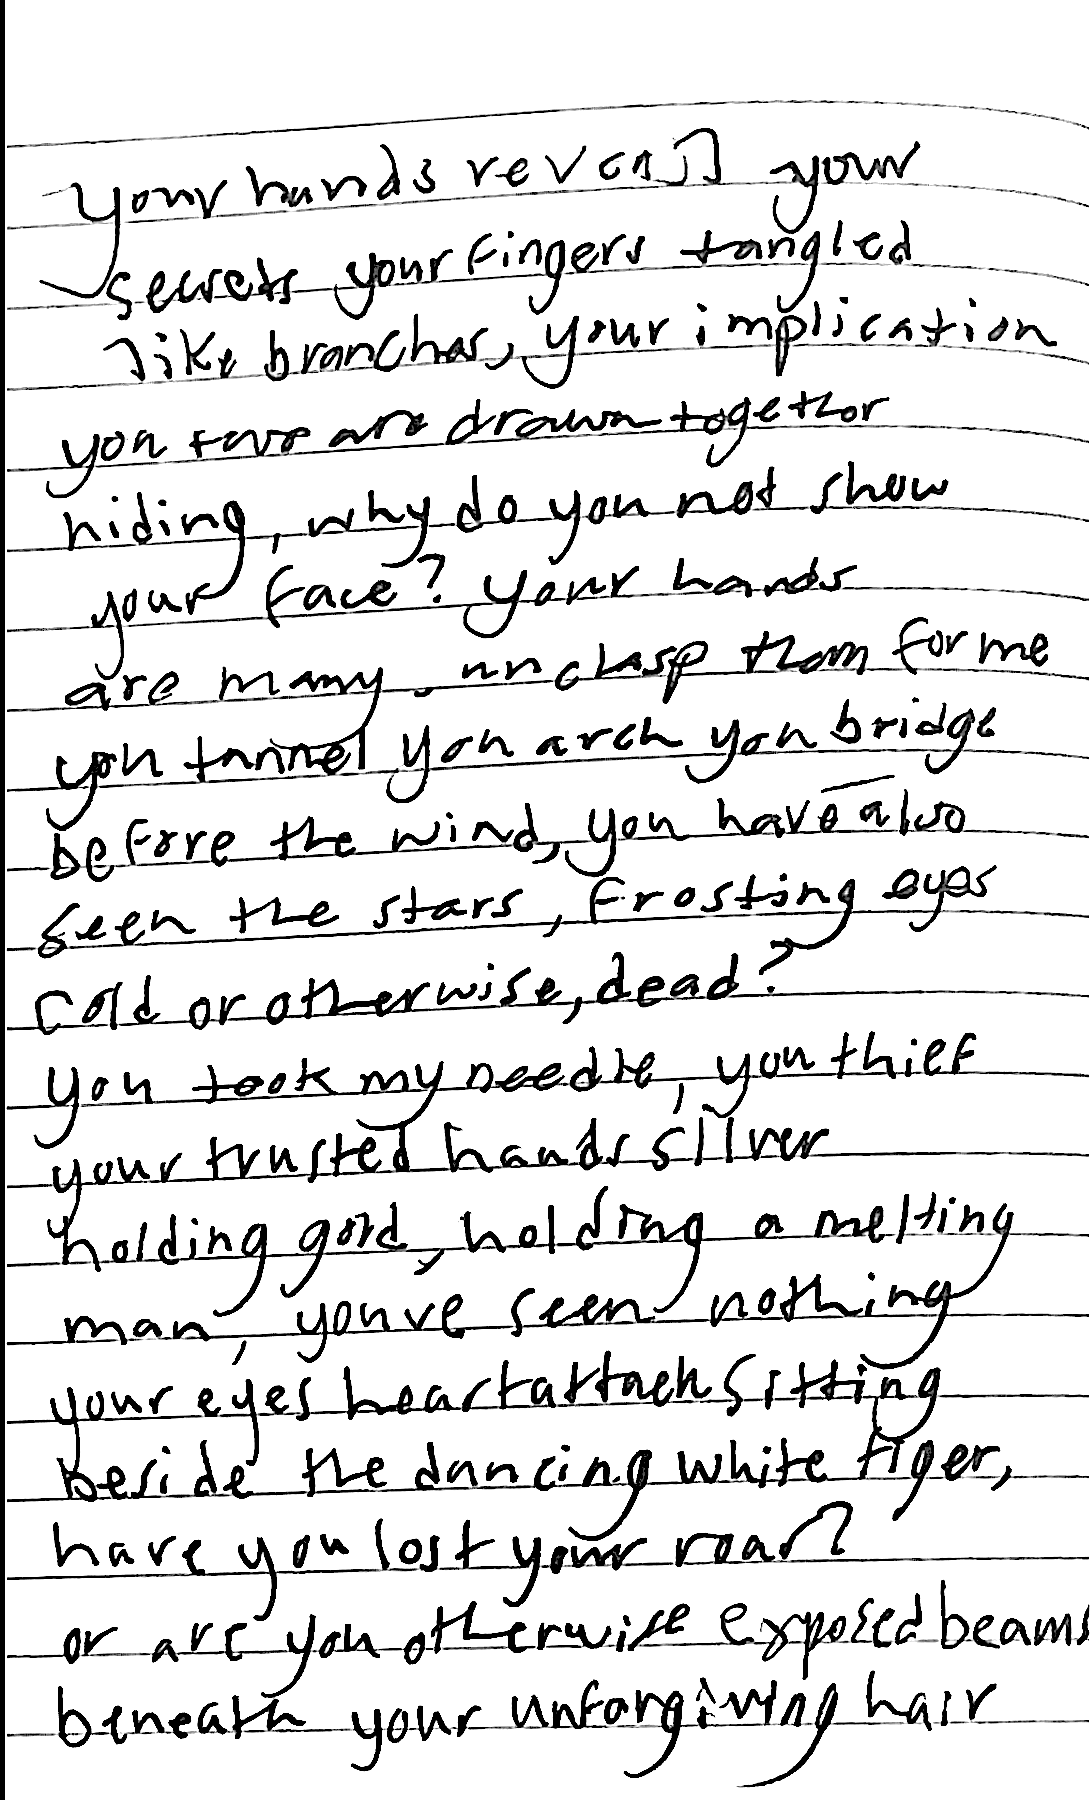 your hands reveal your
secrets your fingers tangled
like branches, your implication
you are drawn together
hiding, why do you not show
your face? your hands
are many, unclasp them for me
you tunnel you arch you bridge
before the wind, you have also
seen the stars, frosting eyes
cold or otherwise, dead?
you took my needle, you thief
your trusted hands silver
holding gold, holding a melting
man, youve seen nothing
your eyes heartattack sitting
beside the dancing white tiger,
have you lost your roar?
or are you otherwise exposed beams
beneath your unforgiving hair